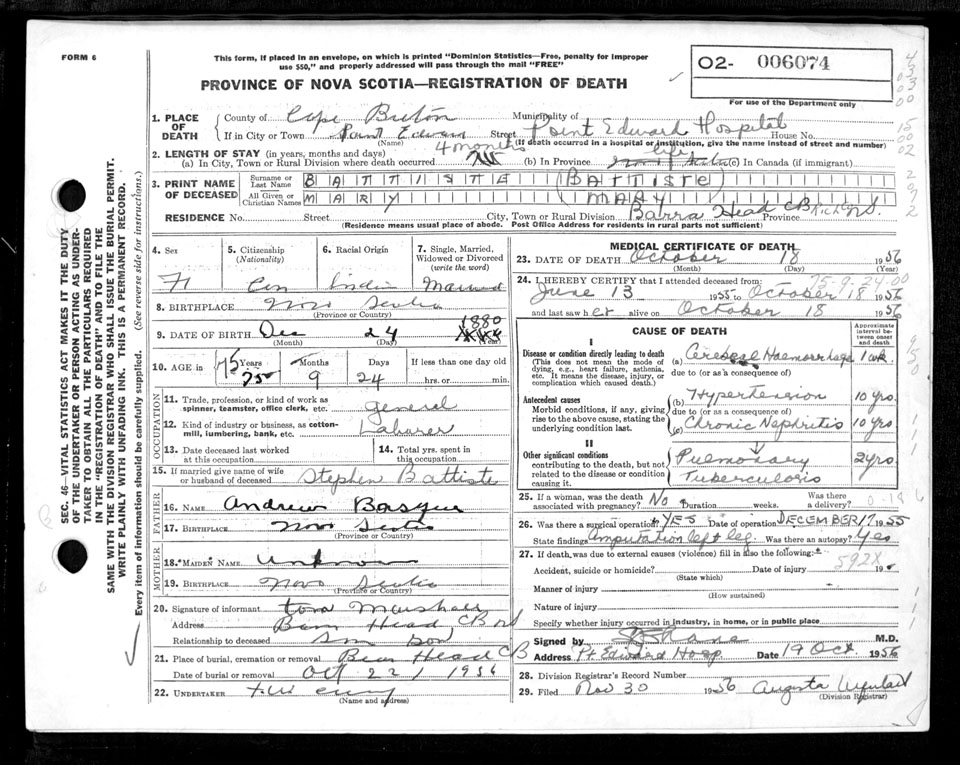 FORM 6
This form, if placed in an envelope, on which is printed "Dominion Statistics—Free, penalty for improper
use $50," and properly addressed will pass through the mail "FREE"
PROVINCE OF NOVA SCOTIA—REGISTRATION OF DEATH
O2- 006074
For use of the Department only
1. PLACE OF DEATH
County of Cape Breton Municipality of
If in City or Town Point Edward Street Point Edward Hospital House No.
(Name) (If death occurred in a hospital or institution, give the name instead of street and number)
2. LENGTH OF STAY (in years, months and days) 4 months life
(a) In City, Town or Rural Division where death occurred (b) In Province (c) In Canada (if immigrant)
3. PRINT NAME OF DECEASED
Surname or Last Name BATTISTE (BATTISTE)
All Given or Christian Names MARY MARY
RESIDENCE No. Street City, Town or Rural Division Barra Head CB Province N.S.
(Residence means usual place of abode. Post Office Address for residents in rural parts not sufficient)
4. Sex
5. Citizenship (Nationality)
6. Racial Origin
7. Single, Married, Widowed or Divorced (write the word)
F Can Indian Married
8. BIRTHPLACE Nova Scotia
(Province or Country)
9. DATE OF BIRTH Dec 24 1880
(Month) (Day) (Year)
10. AGE in 75 Years 9 Months 24 Days If less than one day old
hrs. or min.
OCCUPATION
11. Trade, profession, or kind of work as spinner, teamster, office clerk, etc. general
12. Kind of industry or business, as cotton-mill, lumbering, bank, etc. Laborer
13. Date deceased last worked at this occupation
14. Total yrs. spent in this occupation
15. If married give name of wife or husband of deceased Stephen Battiste
FATHER
16. NAME Andrew Basque
17. BIRTHPLACE Nova Scotia
(Province or Country)
MOTHER
18. MAIDEN NAME Unknown
19. BIRTHPLACE Nova Scotia
(Province or Country)
20. Signature of informant Tom Marshall
Address Barra Head CB NS
Relationship to deceased son son
21. Place of burial, cremation or removal Head CB
Date of burial or removal Oct 22 / 1956
22. UNDERTAKER
(Name and address)
MEDICAL CERTIFICATE OF DEATH
23. DATE OF DEATH October 18 1956
(Month) (Day) (Year)
24. I HEREBY CERTIFY that I attended deceased from: 75-9-24-00
June 13 1955 to October 18 1956
and last saw her alive on October 18 1956
CAUSE OF DEATH
Approximate interval between onset and death
I
Disease or condition directly leading to death
(This does not mean the mode of dying, e.g., heart failure, asthenia, etc. It means the disease, injury, or complication which caused death.)
(a) Cerebral Haemorrhage 1 wk
due to (or as a consequence of)
Antecedent causes
Morbid conditions, if any, giving rise to the above cause, stating the underlying condition last.
(b) Hypertension 10 yrs.
due to (or as a consequence of)
(c) Chronic Nephritis 10 yrs
II
Other significant conditions contributing to the death, but not related to the disease or condition causing it.
Pulmonary Tuberculosis 2 yrs
25. If a woman, was the death associated with pregnancy? No Duration weeks. Was there a delivery?
26. Was there a surgical operation? YES Date of operation DECEMBER 17 1955
State findings Amputation left leg Was there an autopsy? Yes
27. If death was due to external causes (violence) fill in also the following:
592X
Accident, suicide or homicide? Date of injury 19
(State which)
Manner of injury
(How sustained)
Nature of injury
Specify whether injury occurred in industry, in home, or in public place
Signed by M.D.
Address Pt Edward Hosp Date 19 Oct. 1956
28. Division Registrar's Record Number
29. Filed Nov 30 1956 Augusta
(Division Registrar)
SEC. 46—VITAL STATISTICS ACT MAKES IT THE DUTY
OF THE UNDERTAKER OR PERSON ACTING AS UNDERTAKER TO OBTAIN ALL THE PARTICULARS REQUIRED
IN THE "REGISTRATION OF DEATH" AND TO FILE THE
SAME WITH THE DIVISION REGISTRAR WHO SHALL ISSUE THE BURIAL PERMIT.
WRITE PLAINLY WITH UNFADING INK. THIS IS A PERMANENT RECORD.
Every item of information should be carefully supplied. (See reverse side for instructions.)